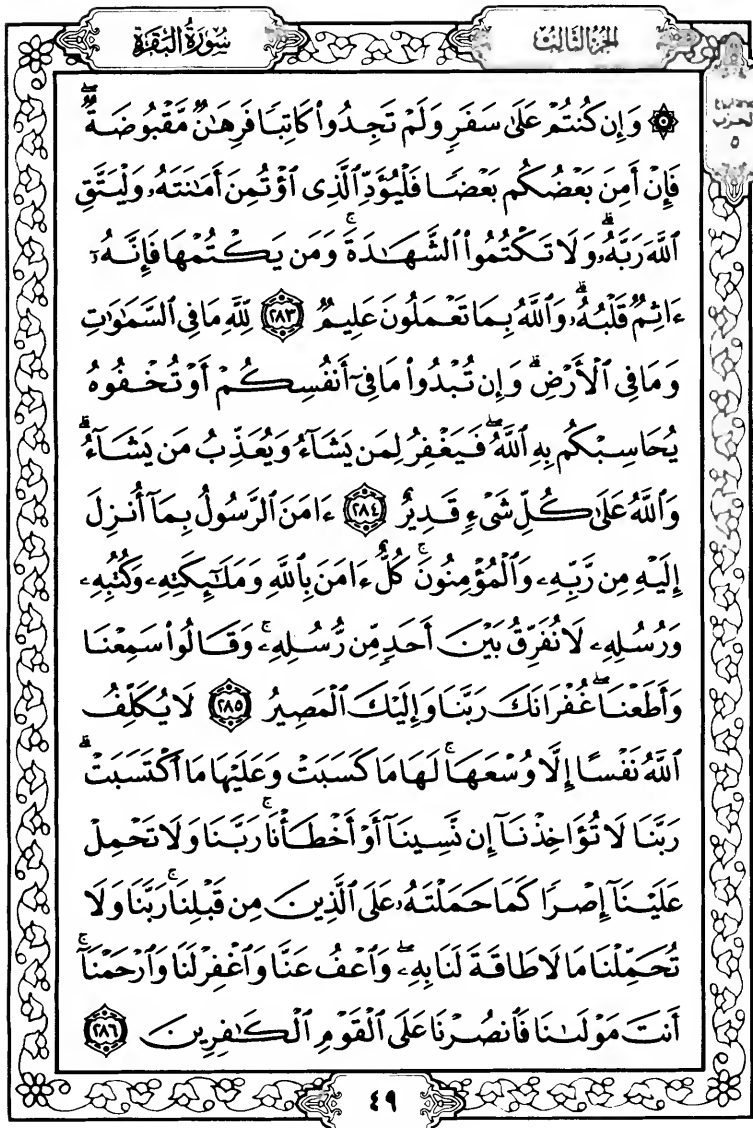 سُورَةُ الْبَقَرَةِ
الجُزْءُ الثَّالِثُ
الحزب
٥
۞ وَإِن كُنتُمْ عَلَىٰ سَفَرٍ وَلَمْ تَجِدُوا۟ كَاتِبًا فَرِهَٰنٌ مَّقْبُوضَةٌ ۖ
فَإِنْ أَمِنَ بَعْضُكُم بَعْضًا فَلْيُؤَدِّ ٱلَّذِى ٱؤْتُمِنَ أَمَٰنَتَهُۥ وَلْيَتَّقِ
ٱللَّهَ رَبَّهُۥ ۗ وَلَا تَكْتُمُوا۟ ٱلشَّهَٰدَةَ ۚ وَمَن يَكْتُمْهَا فَإِنَّهُۥٓ
ءَاثِمٌ قَلْبُهُۥ ۗ وَٱللَّهُ بِمَا تَعْمَلُونَ عَلِيمٌ ٢٨٣ لِّلَّهِ مَا فِى ٱلسَّمَٰوَٰتِ
وَمَا فِى ٱلْأَرْضِ ۗ وَإِن تُبْدُوا۟ مَا فِىٓ أَنفُسِكُمْ أَوْ تُخْفُوهُ
يُحَاسِبْكُم بِهِ ٱللَّهُ ۖ فَيَغْفِرُ لِمَن يَشَآءُ وَيُعَذِّبُ مَن يَشَآءُ ۗ
وَٱللَّهُ عَلَىٰ كُلِّ شَىْءٍ قَدِيرٌ ٢٨٤ ءَامَنَ ٱلرَّسُولُ بِمَآ أُنزِلَ
إِلَيْهِ مِن رَّبِّهِۦ وَٱلْمُؤْمِنُونَ ۚ كُلٌّ ءَامَنَ بِٱللَّهِ وَمَلَٰٓئِكَتِهِۦ وَكُتُبِهِۦ
وَرُسُلِهِۦ لَا نُفَرِّقُ بَيْنَ أَحَدٍ مِّن رُّسُلِهِۦ ۚ وَقَالُوا۟ سَمِعْنَا
وَأَطَعْنَا ۖ غُفْرَانَكَ رَبَّنَا وَإِلَيْكَ ٱلْمَصِيرُ ٢٨٥ لَا يُكَلِّفُ
ٱللَّهُ نَفْسًا إِلَّا وُسْعَهَا ۚ لَهَا مَا كَسَبَتْ وَعَلَيْهَا مَا ٱكْتَسَبَتْ ۗ
رَبَّنَا لَا تُؤَاخِذْنَآ إِن نَّسِينَآ أَوْ أَخْطَأْنَا ۚ رَبَّنَا وَلَا تَحْمِلْ
عَلَيْنَآ إِصْرًا كَمَا حَمَلْتَهُۥ عَلَى ٱلَّذِينَ مِن قَبْلِنَا ۚ رَبَّنَا وَلَا
تُحَمِّلْنَا مَا لَا طَاقَةَ لَنَا بِهِۦ ۖ وَٱعْفُ عَنَّا وَٱغْفِرْ لَنَا وَٱرْحَمْنَآ ۚ
أَنتَ مَوْلَىٰنَا فَٱنصُرْنَا عَلَى ٱلْقَوْمِ ٱلْكَٰفِرِينَ ٢٨٦
٤٩